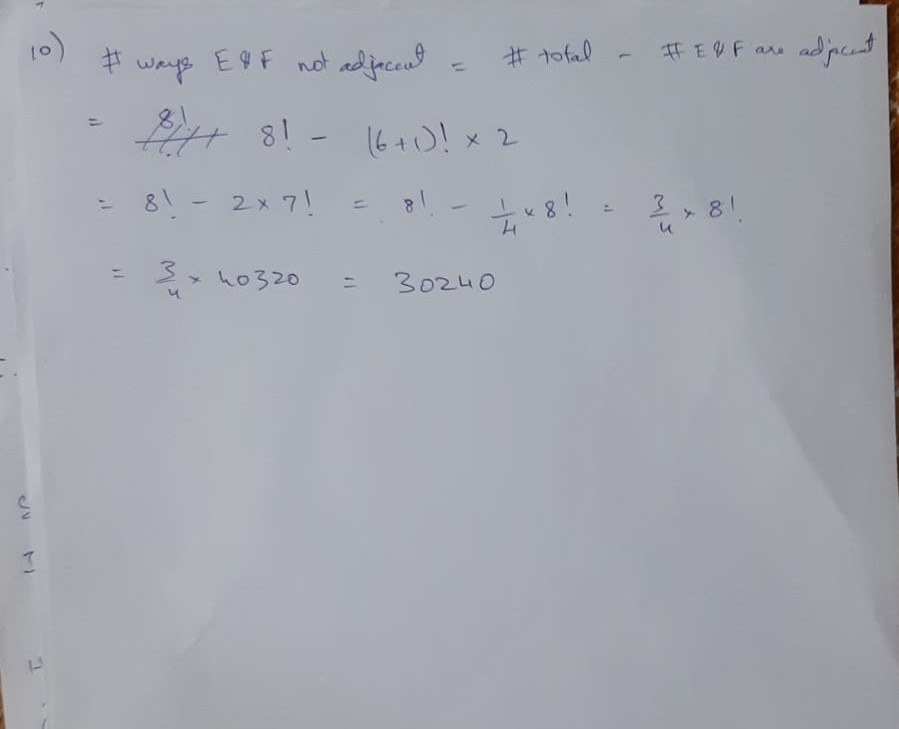 10) # ways E & F not adjacent = # total - # E & F are adjacent
= 8! - (6+1)! × 2
= 8! - 2 × 7! = 8! - 1/4 × 8! = 3/4 × 8!
= 3/4 × 40320 = 30240